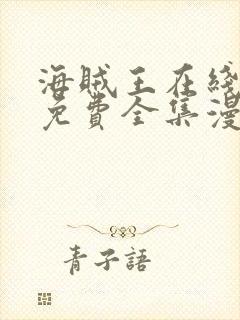 海賊王在綫
免費全集漫
青子語